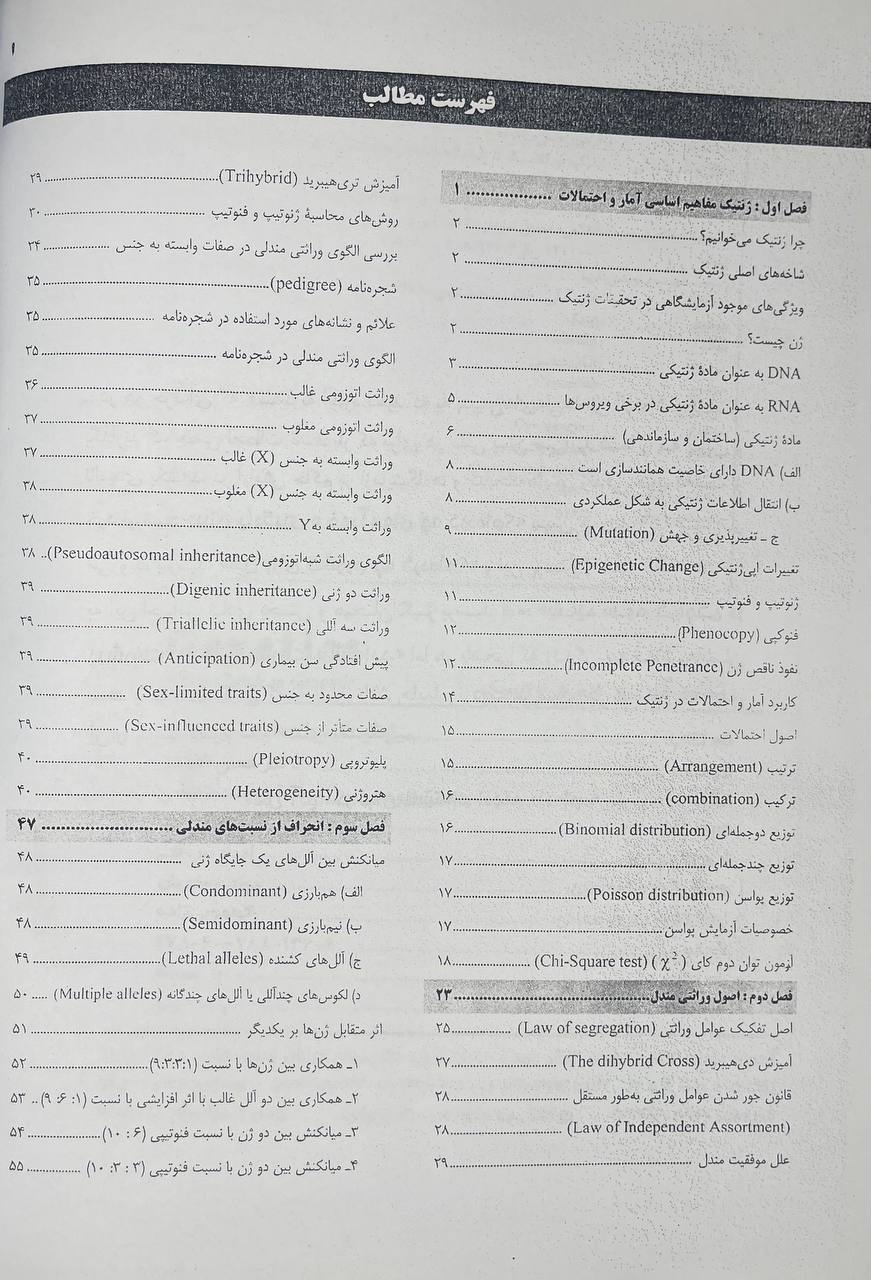 ۱
فهرست مطالب
فصل اول : ژنتیک مفاهیم اساسی آمار و احتمالات ............ ۱
چرا ژنتیک می‌خوانیم؟ ............ ۲
شاخه‌های اصلی ژنتیک ............ ۲
ویژگی‌های موجود آزمایشگاهی در تحقیقات ژنتیک ............ ۲
ژن چیست؟ ............ ۲
DNA به عنوان مادهٔ ژنتیکی ............ ۳
RNA به عنوان مادهٔ ژنتیکی در برخی ویروس‌ها ............ ۵
مادهٔ ژنتیکی (ساختمان و سازماندهی) ............ ۶
الف) DNA دارای خاصیت همانندسازی است ............ ۸
ب) انتقال اطلاعات ژنتیکی به شکل عملکردی ............ ۸
ج ـ تغییرپذیری و جهش (Mutation) ............ ۹
تغییرات اپی‌ژنتیکی (Epigenetic Change) ............ ۱۱
ژنوتیپ و فنوتیپ ............ ۱۱
فنوکپی (Phenocopy) ............ ۱۲
نفوذ ناقص ژن (Incomplete Penetrance) ............ ۱۲
کاربرد آمار و احتمالات در ژنتیک ............ ۱۴
اصول احتمالات ............ ۱۵
ترتیب (Arrangement) ............ ۱۵
ترکیب (combination) ............ ۱۶
توزیع دوجمله‌ای (Binomial distribution) ............ ۱۶
توزیع چندجمله‌ای ............ ۱۷
توزیع پواسن (Poisson distribution) ............ ۱۷
خصوصیات آزمایش پواسن ............ ۱۷
آزمون توان دوم کای (χ²) (Chi-Square test) ............ ۱۸
فصل دوم : اصول وراثتی مندل ............ ۲۳
اصل تفکیک عوامل وراثتی (Law of segregation) ............ ۲۵
آمیزش دی‌هیبرید (The dihybrid Cross) ............ ۲۷
قانون جور شدن عوامل وراثتی به‌طور مستقل ............ ۲۸
(Law of Independent Assortment) ............ ۲۸
علل موفقیت مندل ............ ۲۹
آمیزش تری‌هیبرید (Trihybrid) ............ ۲۹
روش‌های محاسبهٔ ژنوتیپ و فنوتیپ ............ ۳۰
بررسی الگوی وراثتی مندلی در صفات وابسته به جنس ............ ۳۴
شجره‌نامه (pedigree) ............ ۳۵
علائم و نشانه‌های مورد استفاده در شجره‌نامه ............ ۳۵
الگوی وراثتی مندلی در شجره‌نامه ............ ۳۵
وراثت اتوزومی غالب ............ ۳۶
وراثت اتوزومی مغلوب ............ ۳۷
وراثت وابسته به جنس (X) غالب ............ ۳۷
وراثت وابسته به جنس (X) مغلوب ............ ۳۸
وراثت وابسته به Y ............ ۳۸
الگوی وراثت شبه‌اتوزومی (Pseudoautosomal inheritance) .. ۳۸
وراثت دو ژنی (Digenic inheritance) ............ ۳۹
وراثت سه آللی (Triallelic inheritance) ............ ۳۹
پیش افتادگی سن بیماری (Anticipation) ............ ۳۹
صفات محدود به جنس (Sex-limited traits) ............ ۳۹
صفات متأثر از جنس (Sex-influenced traits) ............ ۳۹
پلیوتروپی (Pleiotropy) ............ ۴۰
هتروژنی (Heterogeneity) ............ ۴۰
فصل سوم : انحراف از نسبت‌های مندلی ............ ۴۷
میانکنش بین آلل‌های یک جایگاه ژنی ............ ۴۸
الف) هم‌بارزی (Condominant) ............ ۴۸
ب) نیم‌بارزی (Semidominant) ............ ۴۸
ج) آلل‌های کشنده (Lethal alleles) ............ ۴۹
د) لکوس‌های چندآللی یا آلل‌های چندگانه (Multiple alleles) ..... ۵۰
اثر متقابل ژن‌ها بر یکدیگر ............ ۵۱
۱ـ همکاری بین ژن‌ها با نسبت (۹:۳:۳:۱) ............ ۵۲
۲ـ همکاری بین دو آلل غالب با اثر افزایشی با نسبت (۹ :۶ :۱) .. ۵۳
۳ـ میانکنش بین دو ژن با نسبت فنوتیپی (۶ : ۱۰) ............ ۵۴
۴ـ میانکنش بین دو ژن با نسبت فنوتیپی (۳ : ۳ : ۱۰) ............ ۵۵